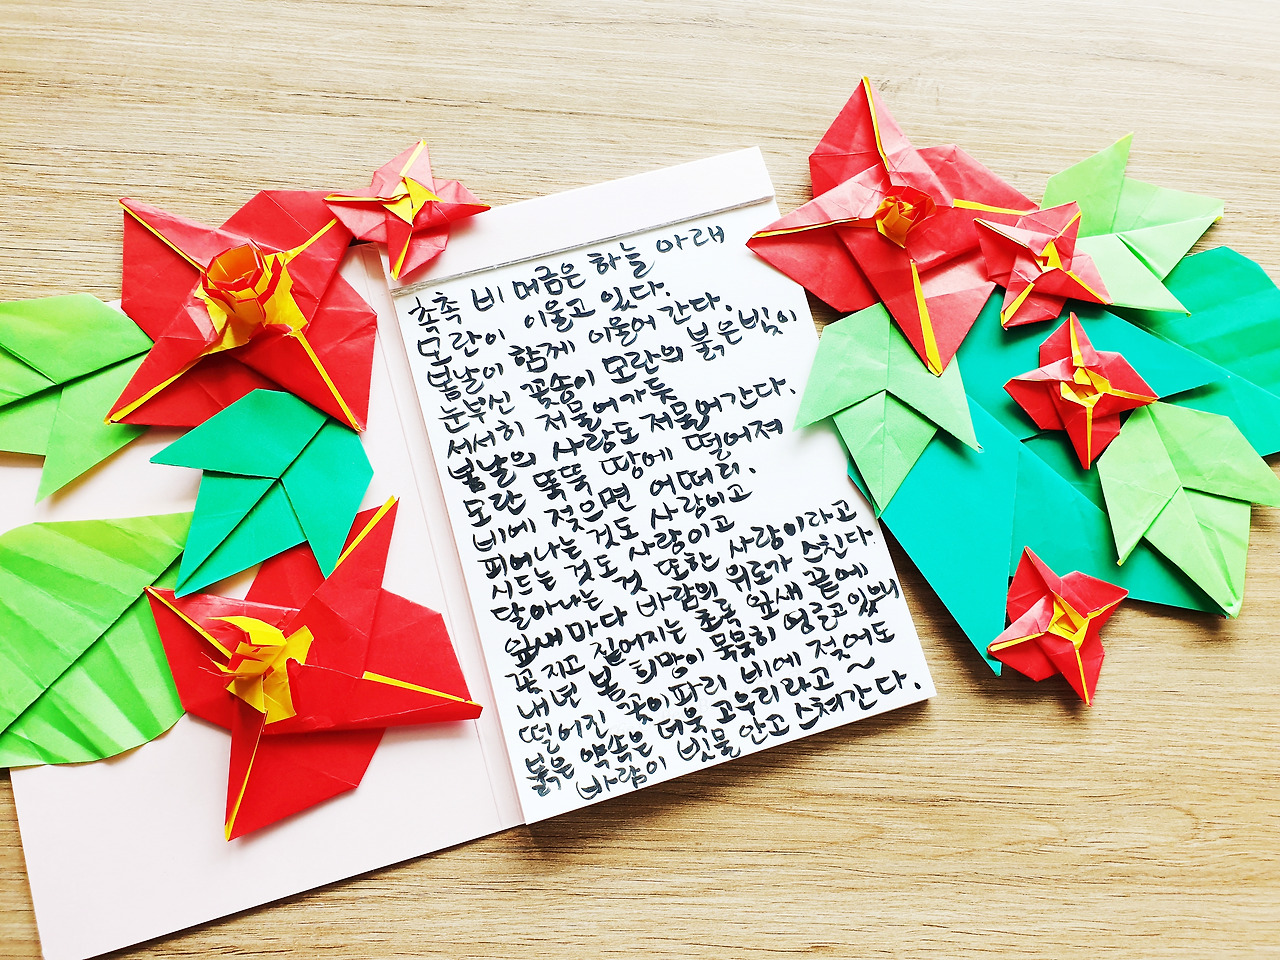 촉촉 비 머금은 하늘 아래
모란이 이울고 있다.
봄날이 함께 이울어 간다.
눈부신 꽃송이 모란의 붉은 빛이
서서히 저물어가듯
봄날의 사랑도 저물어간다.
모란 뚝뚝 땅에 떨어져
비에 젖으면 어떠리.
피어나는 것도 사랑이고
시드는 것도 사랑이고
달아나는 것 또한 사랑이라고
잎새마다 바람의 위로가 스친다
꽃 지고 짙어지는 초록 잎새 끝에
내년 봄 희망이 묵묵히 영글고 있으니
떨어진 꽃이파리 비에 젖어도
붉은 약속은 더욱 고우리라고~
바람이 빗물 안고 스쳐간다.